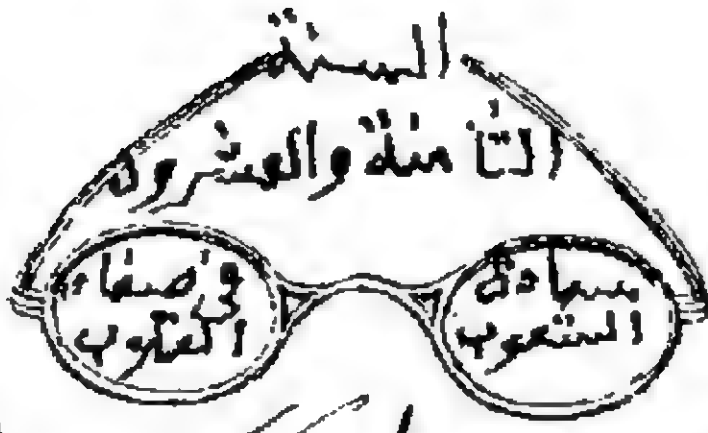 السنة
الثامنة والعشرون
الشعوب
في صفاء
القلوب